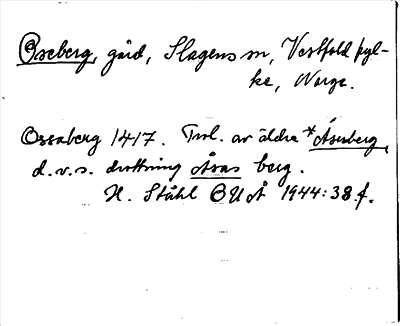 Oseberg, gård, Slagens sn, Vestfold fyl-
ke, Norge.
Ossaberg 1417. Trol. av äldre *Åsuberg,
d.v.s. drottning Åsas berg.
H. Ståhl OUÅ 1944:38 f.